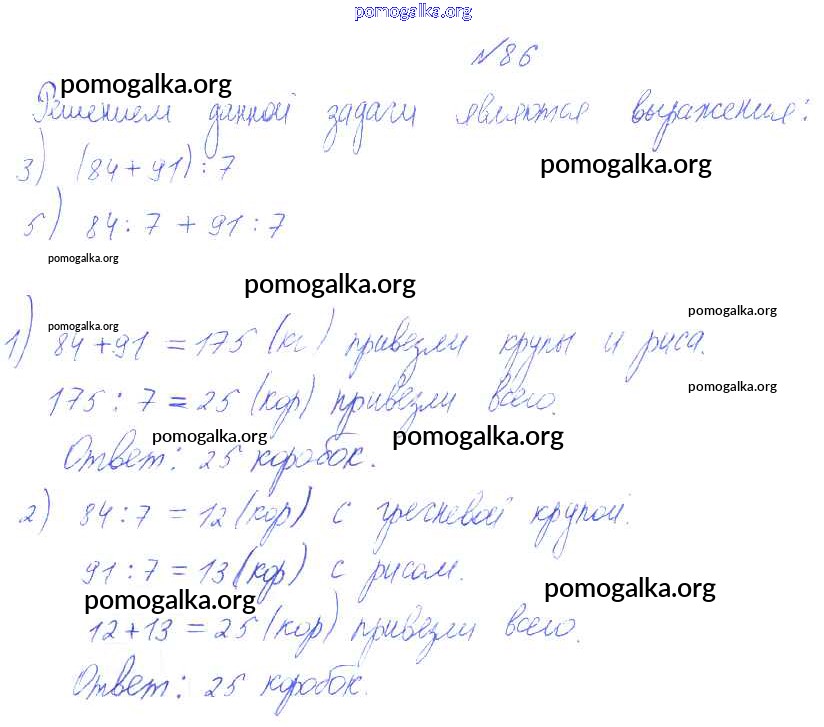 pomogalka.org
№86
pomogalka.org
Решением данной задачи являются выражения:
3) (84+91):7
pomogalka.org
5) 84:7+91:7
pomogalka.org
pomogalka.org
pomogalka.org
pomogalka.org
1) 84+91=175 (кг) привезли крупы и риса.
175:7=25 (кор) привезли всего.
pomogalka.org
pomogalka.org
pomogalka.org
Ответ: 25 коробок.
2) 84:7=12 (кор) с гречневой крупой.
91:7=13 (кор) с рисом.
pomogalka.org
pomogalka.org
12+13=25 (кор) привезли всего.
Ответ: 25 коробок.